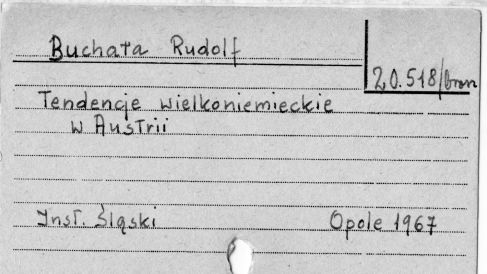 Buchała Rudolf
20.518/bron
Tendencje wielkoniemieckie
w Austrii
Inst. Śląski Opole 1967